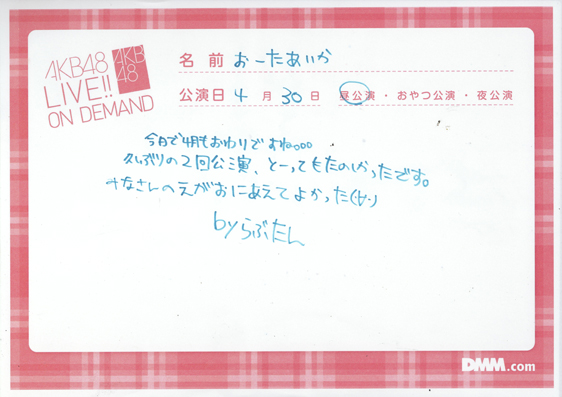 AKB48
LIVE!!
ON DEMAND
AKB
48
名前 おーたあいか
公演日 4月30日 昼公演・おやつ公演・夜公演
今日で4月もおわりですね。。。
久しぶりの2回公演、とってもたのしかったです。
みなさんのえがおにあえてよかった(·∀·)
byらぶたん
DMM.com